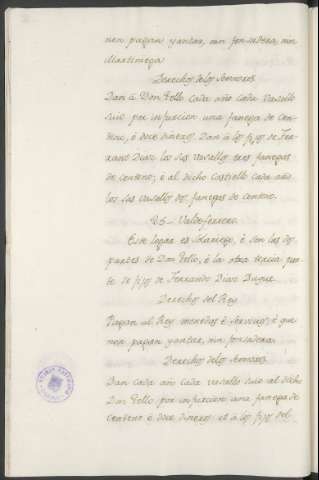 non pagan yantar, nin fonsadera, nin
Martiniega
Derechos de los Sennores
Dan à Don Tello cada año cada Vasallo
suio por infurcion una fanega de cen-
teno, è doce dineros. Dan à los fijos de Fer-
rand Diaz los sus vasallos tres fanegas
de centeno; è al dicho Castiello cada año
los sus vasallos dos fanegas de centeno.
Valdeferrero
Este logar es solariego, è son las dos
partes de Don Tello, è la otra tercia par-
te de fijos de Ferrando Diaz Duque
Derechos del Rey
Pagan al Rey monedas è servicios, è que
non pagan yantar, nin fonsadera.
Derechos de los Sennores
Dan cada año cada vasallo suio al dicho
Don Tello por infurcion una fanega de
centeno è doce dineros. et à los fijos del